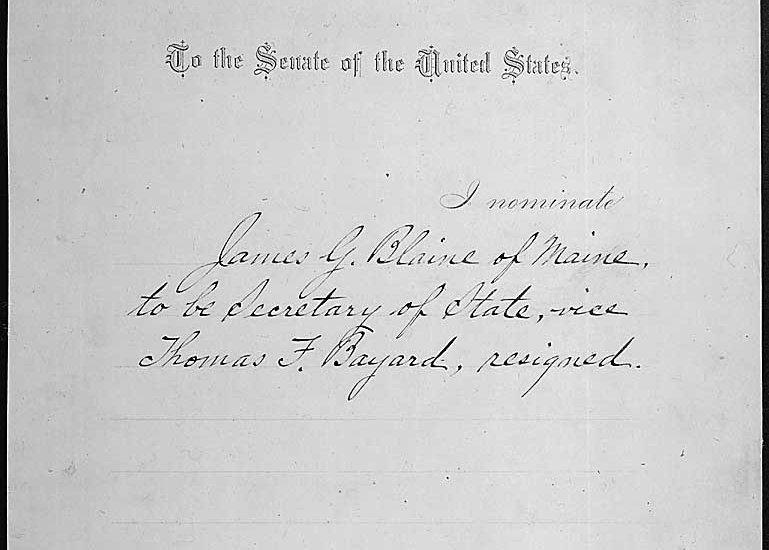 To the Senate of the United States.
I nominate
James G. Blaine of Maine,
to be Secretary of State, vice
Thomas F. Bayard, resigned.